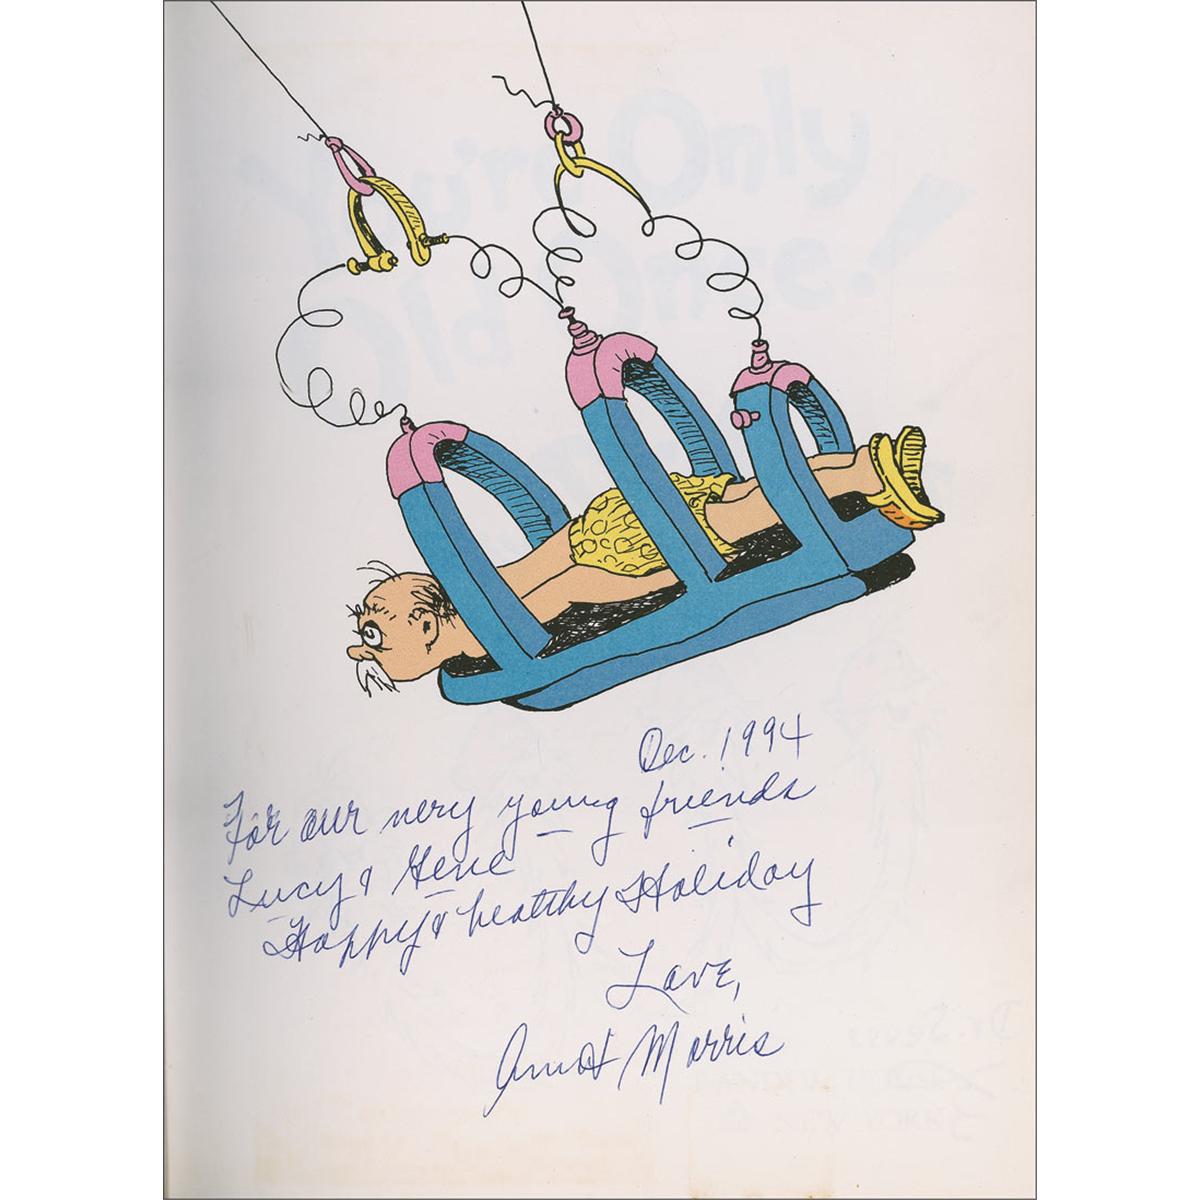 Dec. 1994
For our very young friends
Lucy & Gene
Happy & healthy Holiday
Love,
Morris
You're Only
Old Once!
Dr. Seuss